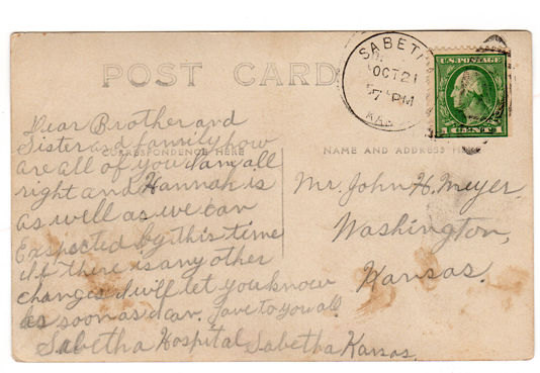 POST CARD
SABETHA
OCT 21
7 PM
KAS
U.S. POSTAGE
1 CENT 1
Dear Brother and
Sister and family how
CORRESPONDENCE HERE
are all of you I am all
right and Hannah is
as well as we can
Exspected by this time
if there is any other
changes I will let you know
as soon as I can. Love to you all
Sabetha Hospital Sabetha Kansas.
NAME AND ADDRESS HERE
Mr. John H. Meyer,
Washington,
Kansas.